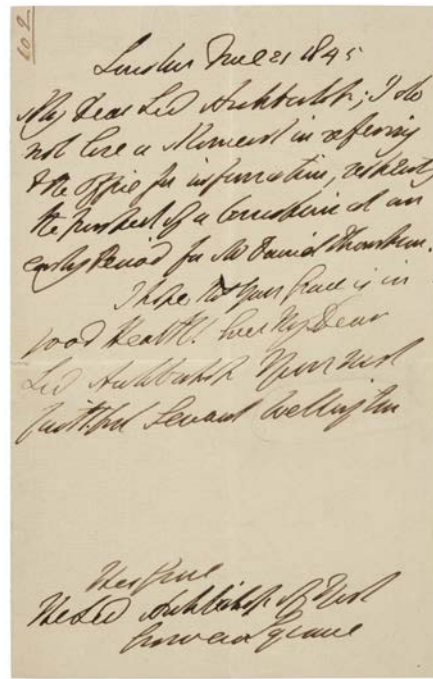 London June 21 1845
My Dear Lord Archbishop; I do
not lose a Moment in referring
to the Office for information, respecting
the prospect of a Commission at an
early Period for Mr Daniel
I hope that your Grace is in
good Health! Ever My Dear
Lord Archbishop Your most
faithful Servant Wellington
His Grace
The Lord Archbishop of York
Grosvenor Square